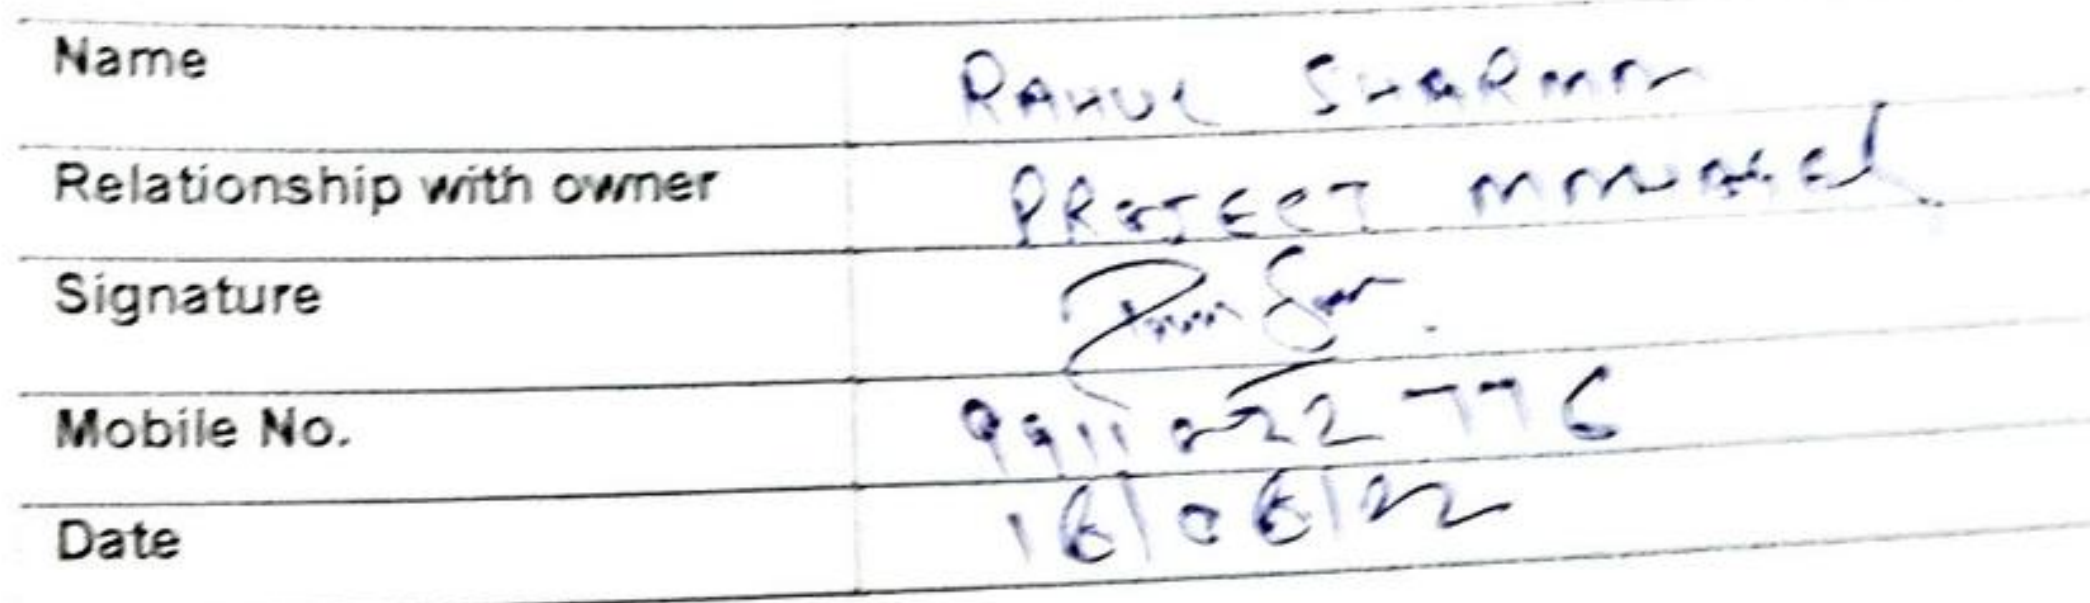 Name RAHUL SHARMA
Relationship with owner PROJECT MANAGER
Signature
Mobile No. 9911022776
Date 16/06/22